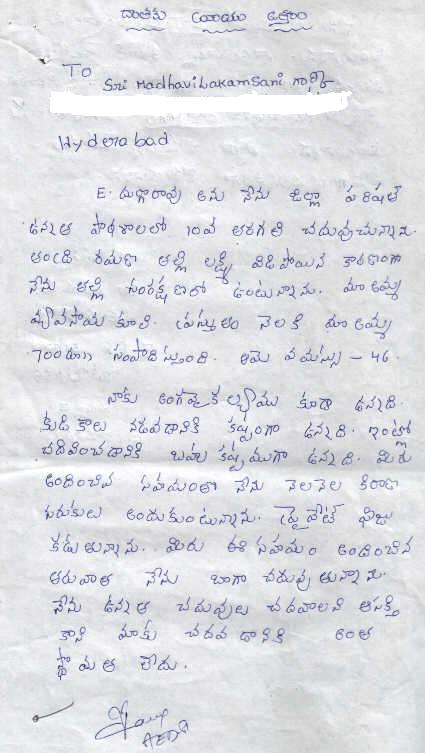 దాతకు వ్రాయు ఉత్తరం
To
Sri Madhavi Lakamsani గార్కి
Hyderabad
E. దుర్గారావు అను నేను జిల్లా పరిషత్
ఉన్నత పాఠశాలలో 10వ తరగతి చదువుచున్నాను.
తండ్రి రమణ తల్లి లక్ష్మి విడిపోయిన కారణంగా
నేను తల్లి సంరక్షణలో ఉంటున్నాను. మా అమ్మ
వ్యవసాయ కూలి. ప్రస్తుతం నెలకి మా అమ్మ
700రూ॥ సంపాదిస్తుంది. ఆమె వయస్సు - 46.
నాకు అంగవైకల్యము కూడా ఉన్నది.
కుడికాలు నడవడానికి కష్టంగా ఉన్నది. ఇంట్లో
చదివించడానికి బహు కష్టముగా ఉన్నది. మీరు
అందించిన సహయంతో నేను నెలనెల కిరాణ
సరుకులు అందుకుంటున్నాను. ప్రైవేట్ ఫీజు
కడుతున్నాను. మీరు ఈ సహయం అందించిన
తరువాత నేను బాగా చదువుతున్నాను.
నేను ఉన్నత చదువులు చదవాలని ఆసక్తి
కాని మాకు చదవడానికి అంత
స్థోమత లేదు.